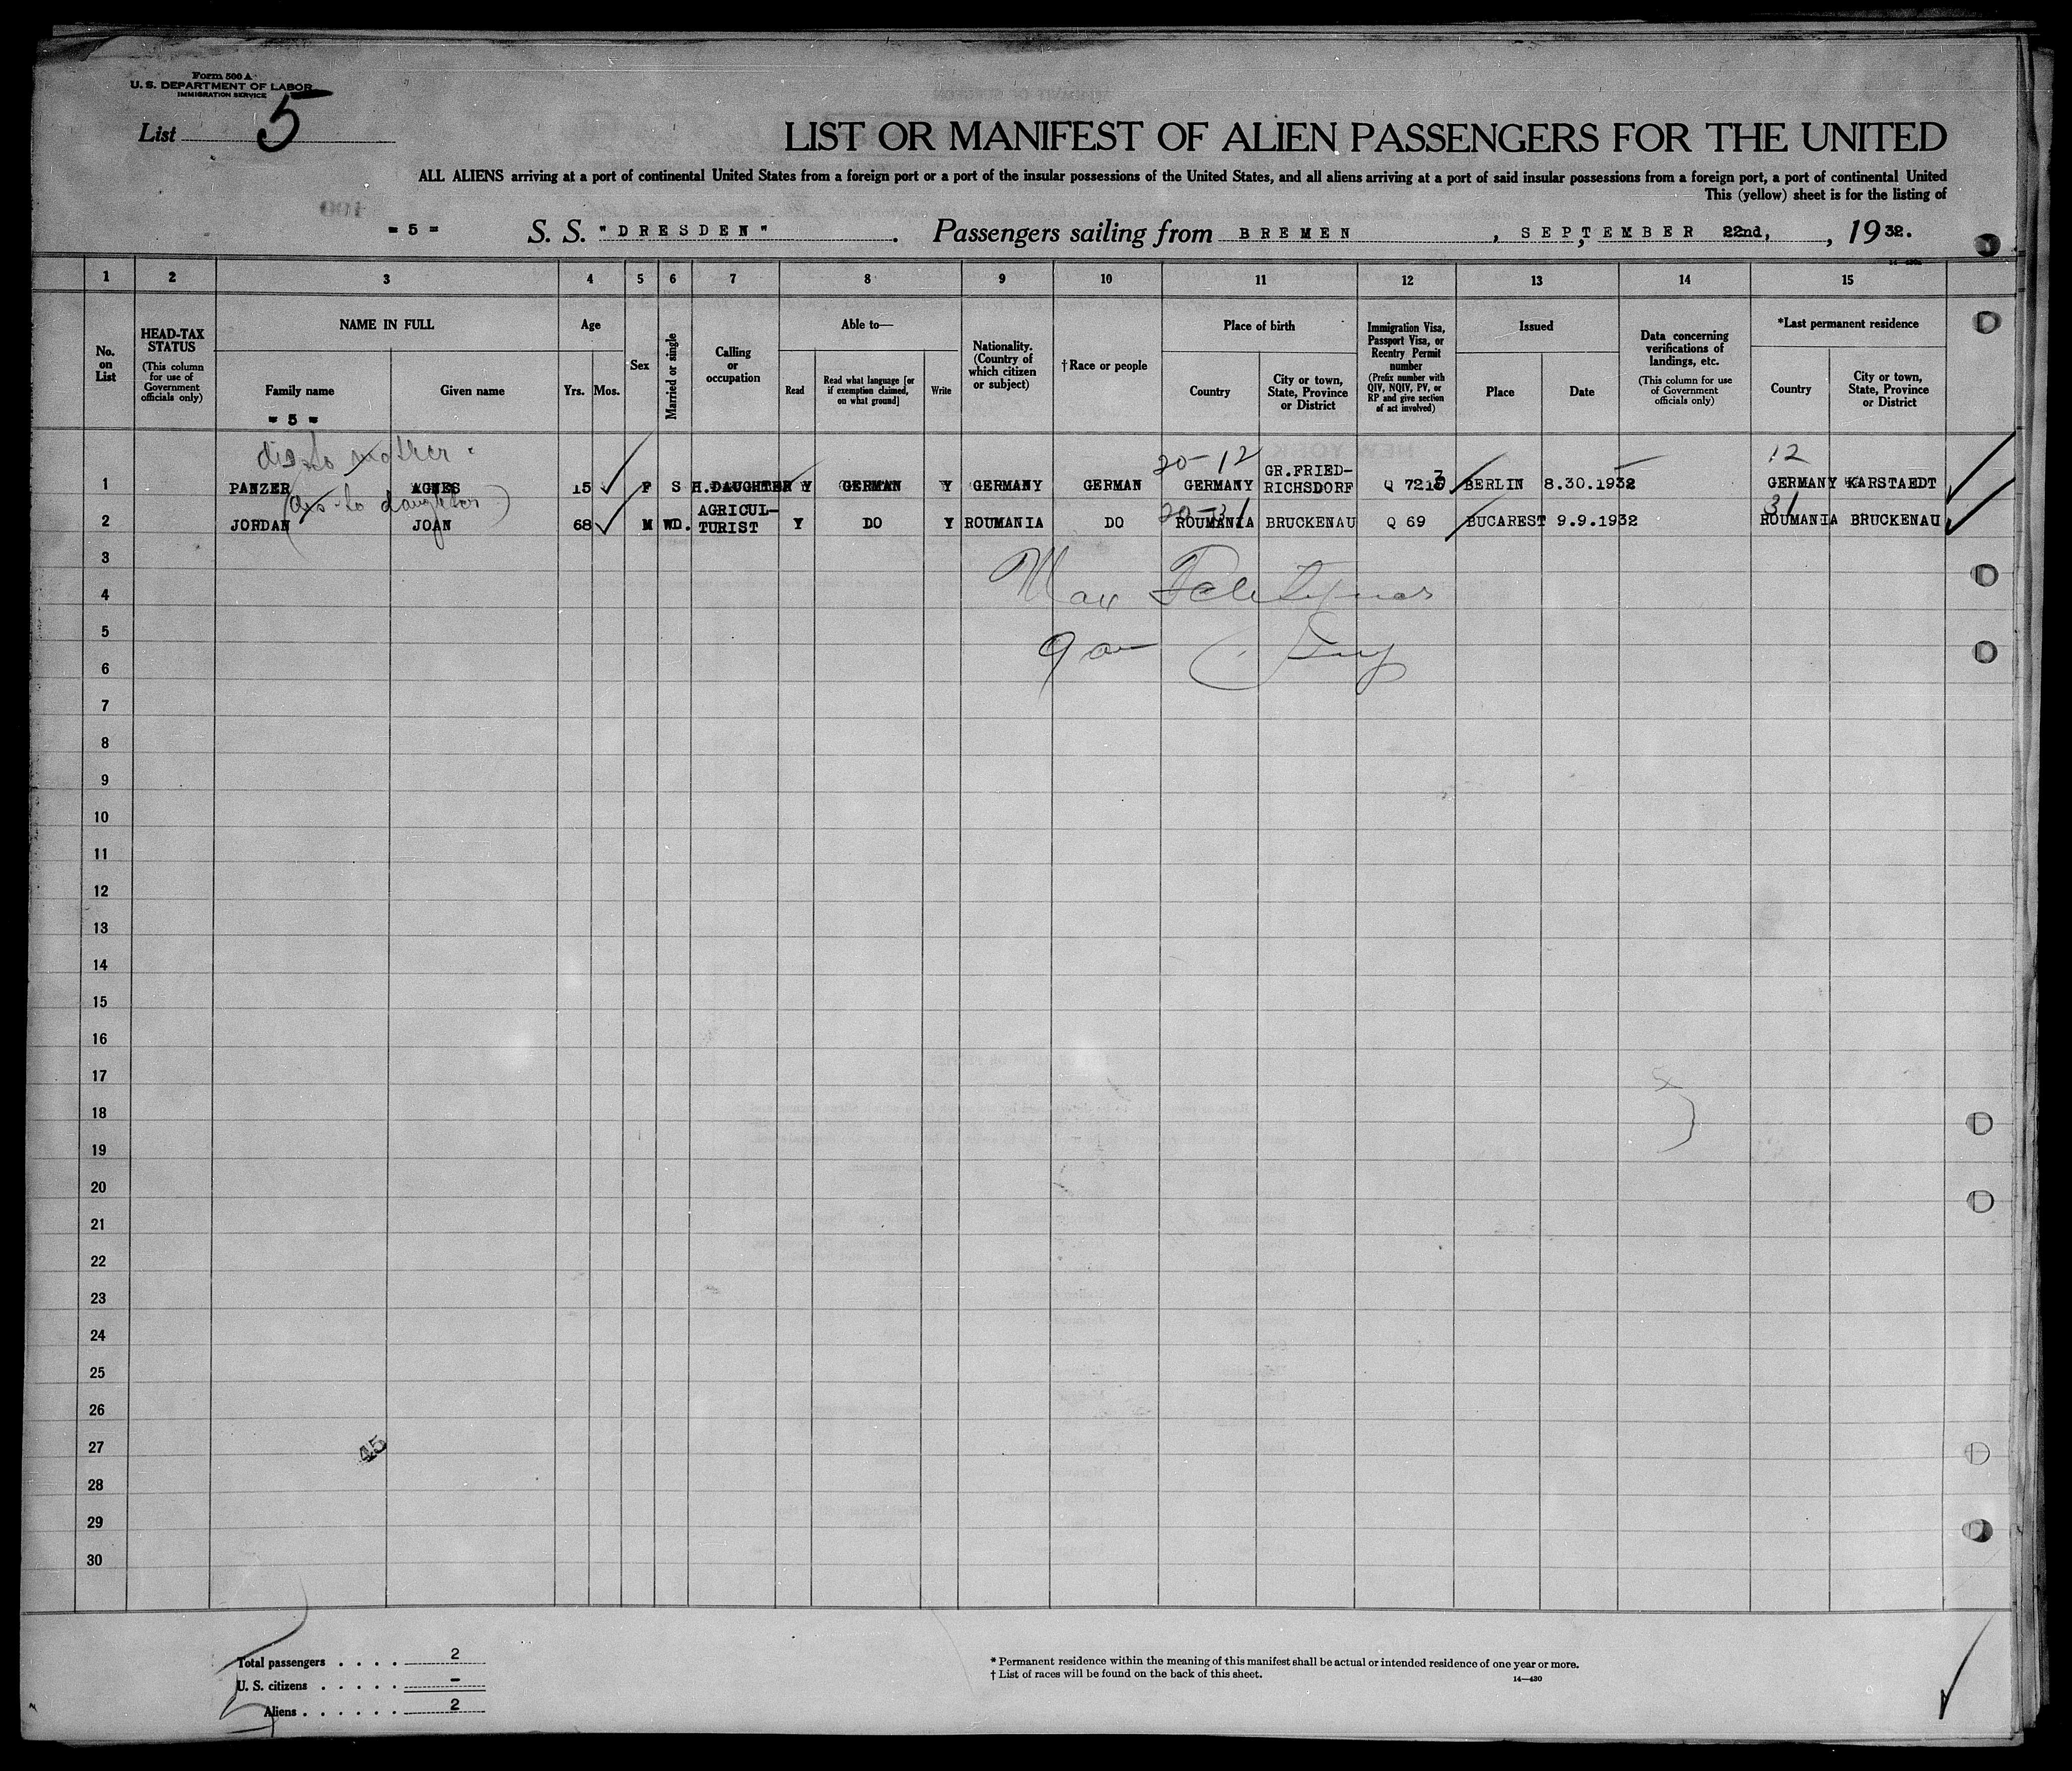 Form 500 A
U. S. DEPARTMENT OF LABOR
IMMIGRATION SERVICE
List 5
LIST OR MANIFEST OF ALIEN PASSENGERS FOR THE UNITED
ALL ALIENS arriving at a port of continental United States from a foreign port or a port of the insular possessions of the United States, and all aliens arriving at a port of said insular possessions from a foreign port, a port of continental United
This (yellow) sheet is for the listing of
= 5 = S. S. "DRESDEN". Passengers sailing from BREMEN, SEPTEMBER 22nd, , 1932.
1 2 3 4 5 6 7 8 9 10 11 12 13 14 15
No. on List
HEAD-TAX STATUS
(This column for use of Government officials only)
NAME IN FULL
Family name
Given name
= 5 =
Age
Yrs. Mos.
Sex
Married or single
Calling or occupation
Able to—
Read
Read what language [or if exemption claimed, on what ground]
Write
Nationality. (Country of which citizen or subject)
† Race or people
Place of birth
Country
City or town, State, Province or District
Immigration Visa, Passport Visa, or Reentry Permit number
(Prefix number with QIV, NQIV, PV, or RP and give section of act involved)
Issued
Place
Date
Data concerning verifications of landings, etc.
(This column for use of Government officials only)
*Last permanent residence
Country
City or town, State, Province or District
dis to mother
20-12 12
1 PANZER AGNES 15 F S H.DAUGHTER Y GERMAN Y GERMANY GERMAN GERMANY GR.FRIED-RICHSDORF Q 7213 BERLIN 8.30.1932 GERMANY KARSTAEDT
(dis to daughter)
20-31 31
2 JORDAN JOAN 68 M WD. AGRICUL-TURIST Y DO Y ROUMANIA DO ROUMANIA BRUCKENAU Q 69 BUCAREST 9.9.1932 ROUMANIA BRUCKENAU
3
4
5
6
7
8
9
10
11
12
13
14
15
16
17
18
19
20
21
22
23
24
25
26
27
45
28
29
30
Total passengers . . . . 2
U. S. citizens . . . . . –
Aliens . . . . . . 2
* Permanent residence within the meaning of this manifest shall be actual or intended residence of one year or more.
† List of races will be found on the back of this sheet.
14—430